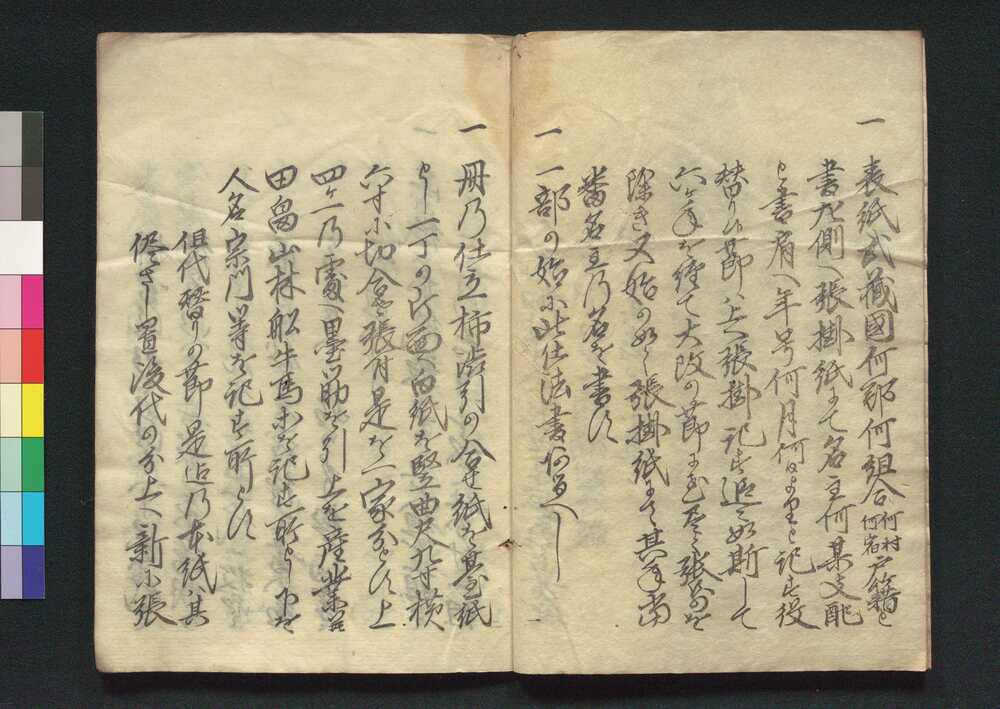 一 表紙武藏國何郡何組合何村何宿戸籍と
書左側へ張掛紙にて名主何某支配
と書肩へ年号何月何日よりと記す役
替り候節ハ上へ張掛記す追々如斯して
六ケ年を経て大改の節
除き又始の如く張掛紙にて其年当
番名主乃名を書す
一 一部の始に此仕法書
一 冊乃仕立柿渋引の合せ紙を台紙
とし一丁の片面へ白紙を竪曲尺九寸横
六寸に切合せ張付是を一家分とす上
四ケ一乃処へ墨筋を引上を産業并
田畠山林船牛馬等を記す所とし下を
人名宗門等を記す所とす
但代替りの節是迄乃本紙ハ其
侭さし置後代の分上へ新に張